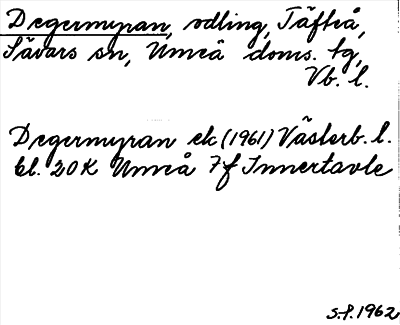 Degermyran, odling, Täfteå,
Sävars sn, Umeå doms. tg,
Vb. l.
Degermyran ek (1961) Västerb. l.
bl. 20 K Umeå 7 f Innertavle
S.P. 1962